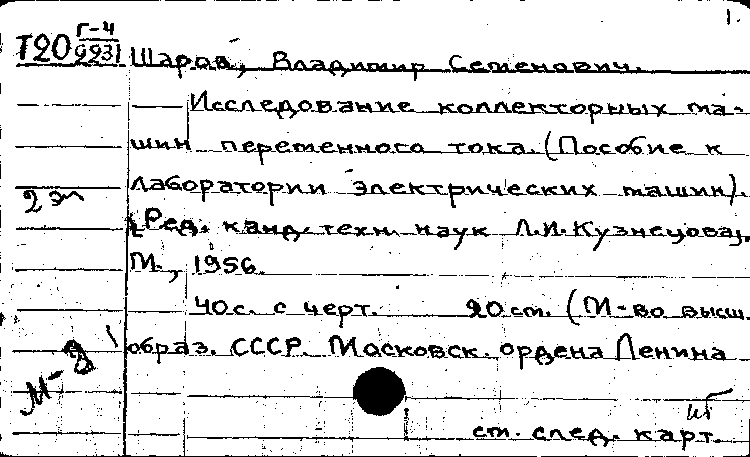 1.
Т20 Г-4
9231
Шаров, Владимир Семенович.
Исследование коллекторных ма-
шин переменного тока. (Пособие к
лаборатории электрических машин).
2 эк
[Ред. канд. техн. наук Л.И. Кузнецова].
М., 1956.
40 с. с черт. 20 см. (М-во высш.
образ. СССР. Московск. ордена Ленина
М-
см. след. карт.